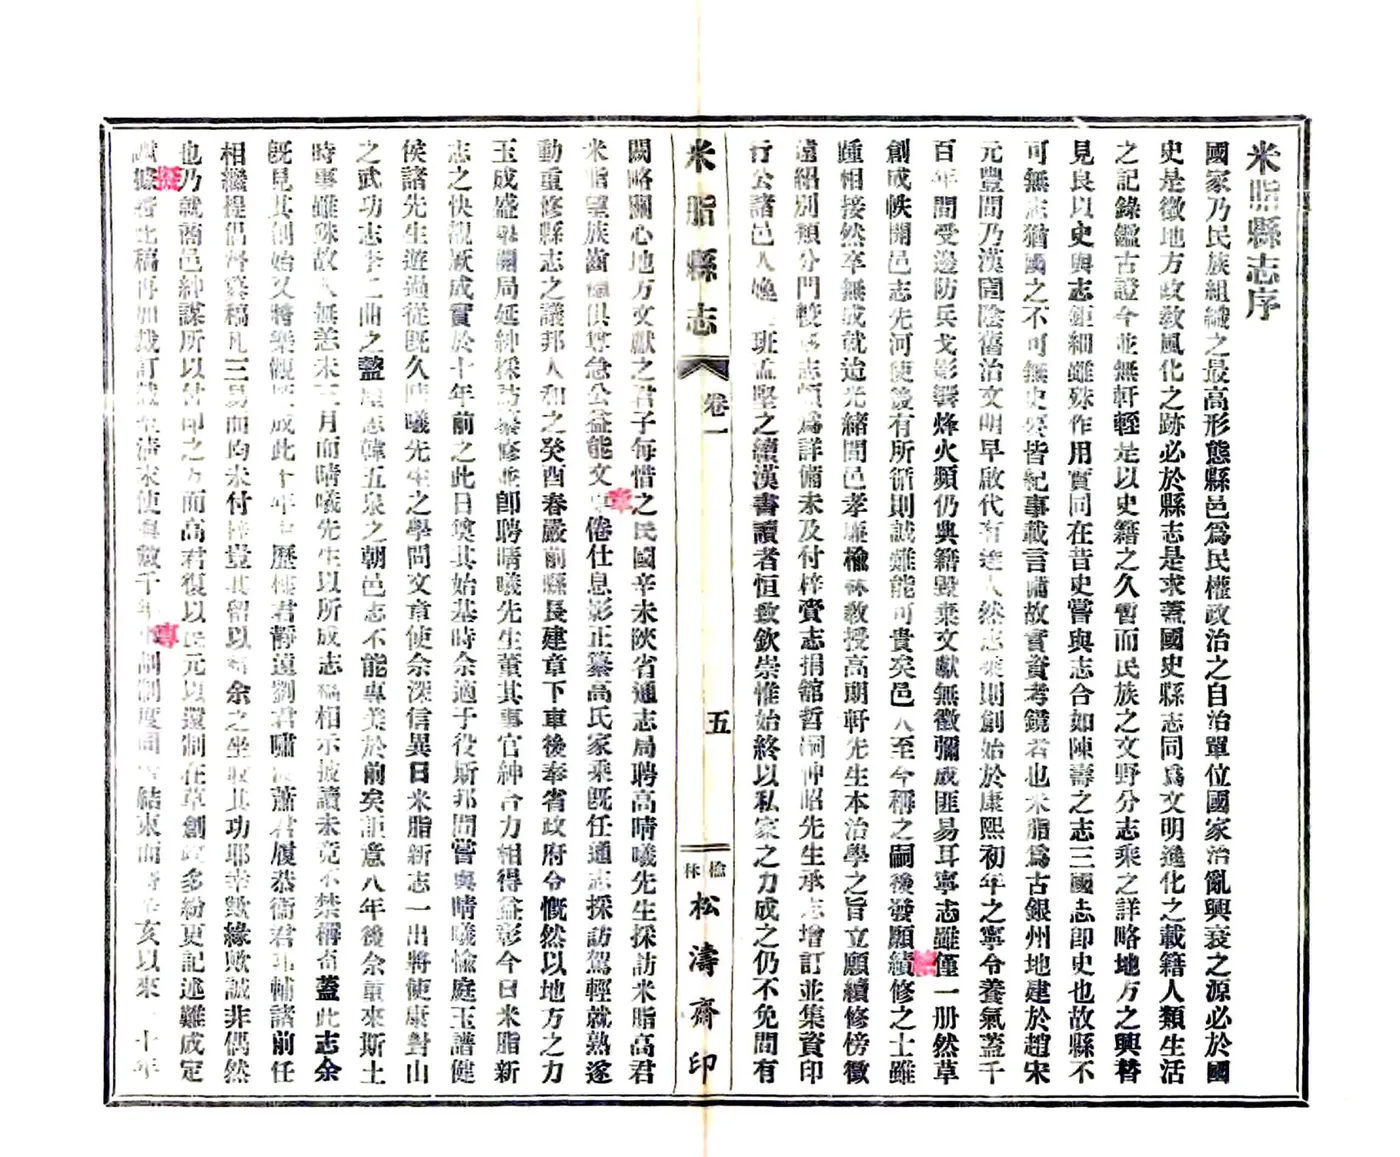 米脂縣志序
國家乃民族組織之最高形態縣邑爲民權政治之自治單位國家治亂興衰之源必於國
史是徵地方政敎風化之跡必於縣志是求蓋國史縣志同爲文明進化之載籍人類生活
之記錄鑑古證今並無軒輊是以史籍之久暫而民族之文野分志乘之詳略地方之興替
見良以史與志鉅細雖殊作用實同在昔史嘗與志合如陳壽之志三國志卽史也故縣不
可無志猶國之不可無史矣皆紀事載言庸故實資考鏡者也米脂爲古銀州地建於趙宋
元豐間乃漢圁陰舊治文明早啟代有達人然志乘則創始於康熙初年之寧令養氣蓋千
百年間受邊防兵戈影響烽火頻仍典籍毀棄文獻無徵彌成匪易耳寧志雖僅一册然草
創成帙開邑志先河使後有所循則誠難能可貴矣邑人至今稱之嗣後發願續修之士雖
踵相接然卒無成就迨光緖間邑孝廉楡林敎授高朗軒先生本治學之旨立願續修傍徵
遠紹別類分門較寧志頗爲詳備未及付梓賫志捐舘哲嗣仲昭先生承志增訂並集資印
行公諸邑人媲班孟堅之續漢書讀者恒致欽崇惟始終以私家之力成之仍不免間有
米脂縣志
卷一
五
楡林松濤齋印
闕略關心地方文獻之君子每惜之民國辛未陝省通志局聘高晴曦先生採訪米脂高君
米脂望族齒德俱尊急公益能文章倦仕息影正纂高氏家乘旣任通志採訪駕輕就熟遂
動重修縣志之議邦人和之癸酉春嚴前縣長建章下車後奉省政府令慨然以地方之力
玉成盛舉開局延紳採訪纂修並卽聘晴曦先生董其事官紳合力相得益彰今日米脂新
志之快覩厥成實於十年前之此日奠其始基時余適于役斯邦間嘗與晴曦愉庭玉譜健
侯諸先生遊過從旣久晴曦先生之學問文章使余深信異日米脂新志一出將使康對山
之武功志李二曲之盩厔志韓五泉之朝邑志不能專美於前矣詎意八年後余重來斯土
時事雖殊故人無恙未三月而晴曦先生以所成志稿相示披讀未竟不禁稱奇蓋此志余
旣見其創始又將樂觀厥成此十年中歷桂君靜遠劉君嘯蕭君履恭衞君邦輔諸前任
相繼提倡督纂稿凡三易而均未付梓豈其留以待余之坐收其功耶幸歟緣歟誠非偶然
也乃就商邑紳謀所以付印之方而高君復以民元以還制在草創政多紛更記述難成定
讞擬若此稿再加裁訂截至淸末使專敍千年制度同結束而辛亥以來二十年